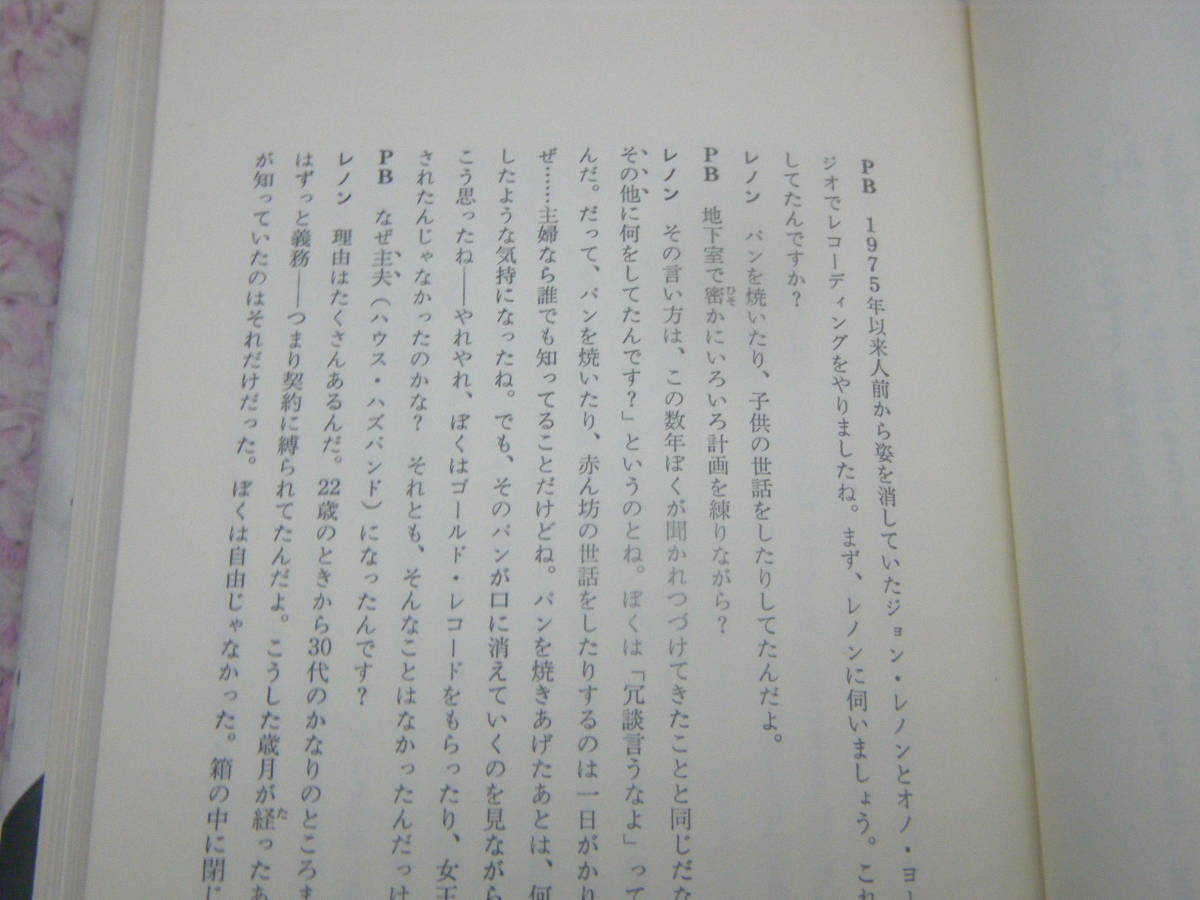 PB 1975年以来人前から姿を消していたジョン・レノンとオノ・ヨー
ジオでレコーディングをやりましたね。まず、レノンに伺いましょう。これ
してたんですか?
レノン パンを焼いたり、子供の世話をしたりしてたんだよ。
PB 地下室で密かにいろいろ計画を練りながら?
レノン その言い方は、この数年ぼくが聞かれつづけてきたことと同じだな
その他に何をしてたんです?」というのとね。ぼくは「冗談言うなよ」って
んだ。だって、パンを焼いたり、赤ん坊の世話をしたりするのは一日がかり
ぜ……主婦なら誰でも知ってることだけどね。パンを焼きあげたあとは、何
したような気持になったね。でも、そのパンが口に消えていくのを見ながら
こう思ったね——やれやれ、ぼくはゴールド・レコードをもらったり、女王
されたんじゃなかったのかな? それとも、そんなことはなかったんだっけ
PB なぜ主夫(ハウス・ハズバンド)になったんです?
レノン 理由はたくさんあるんだ。22歳のときから30代のかなりのところま
はずっと義務——つまり契約に縛られてたんだよ。こうした歳月が経ったあ
が知っていたのはそれだけだった。ぼくは自由じゃなかった。箱の中に閉じ